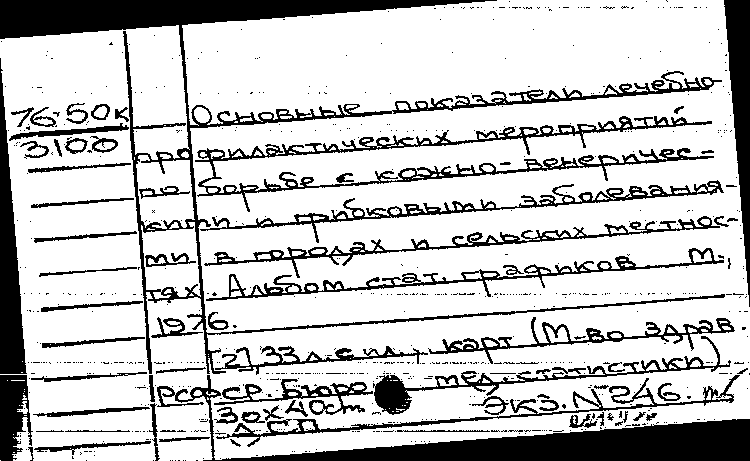 76-50к
3100
Основные показатели лечебно-
профилактических мероприятий
по борьбе с кожно-венеричес-
кими и грибковыми заболевания-
ми в городах и сельских местнос-
тях. Альбом стат. графиков. М.,
1976.
[2], 33 л. с ил., карт (М-во здрав.
РСФСР. Бюро мед. статистики)
30х40см. Экз. № 246.
ДСП